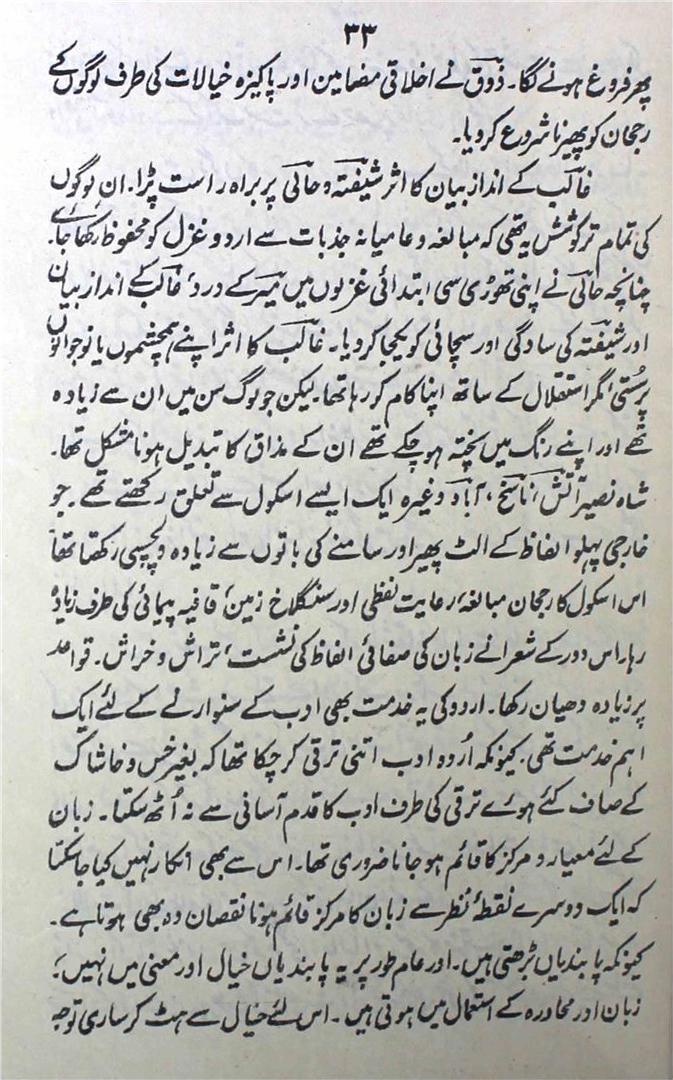 ۳۳
پھر فروغ ہونے لگا۔ ذوقؔ نے اخلاقی مضامین اور پاکیزہ خیالات کی طرف لوگوں کے
رجحان کو پھیرنا شروع کر دیا۔
غالبؔ کے انداز بیان کا اثر شیفتہؔ و حالیؔ پر براہ راست پڑا۔ ان لوگوں
کی تمام تر کوشش یہ تھی کہ مبالغہ و عامیانہ جذبات سے اردو غزل کو محفوظ رکھا جائے۔
چنانچہ حالیؔ نے اپنی تھوڑی سی ابتدائی غزلوں میں میرؔ کے درد، غالبؔ کے انداز بیان
اور شیفتہؔ کی سادگی اور سچائی کو یکجا کر دیا۔ غالبؔ کا اثر اپنے ہمچشموں یا نوجوانوں
پر سُستی، مگر استقلال کے ساتھ اپنا کام کر رہا تھا۔ لیکن جو لوگ سن میں ان سے زیادہ
تھے اور اپنے رنگ میں پختہ ہو چکے تھے ان کے مذاق کا تبدیل ہونا مشکل تھا۔
شاہ نصیرؔ آتشؔ، ناسخؔ، آبادؔ وغیرہ ایک ایسے اسکول سے تعلق رکھتے تھے۔ جو
خارجی پہلو الفاظ کے الٹ پھیر اور سامنے کی باتوں سے زیادہ دلچسپی رکھتا تھا
اس اسکول کا رجحان مبالغہ، رعایت لفظی اور سنگلاخ زمین، قافیہ پیمائی کی طرف زیادہ
رہا۔ اس دور کے شعرا نے زبان کی صفائی الفاظ کی نشست، تراش و خراش۔ قواعد
پر زیادہ دھیان رکھا۔ اردو کی یہ خدمت بھی ادب کے سنوارنے کے لئے ایک
اہم خدمت تھی۔ کیونکہ اُردو ادب اتنی ترقی کر چکا تھا کہ بغیر خس و خاشاک
کے صاف کئے ہوئے ترقی کی طرف ادب کا قدم آسانی سے نہ اُٹھ سکتا۔ زبان
کے لئے معیار و مرکز کا قائم ہو جانا ضروری تھا۔ اس سے بھی انکار نہیں کیا جا سکتا
کہ ایک دوسرے نقطۂ نظر سے زبان کا مرکز قائم ہونا نقصان دہ بھی ہوتا ہے۔
کیونکہ پابندیاں بڑھتی ہیں۔ اور عام طور پر یہ پابندیاں خیال اور معنی میں نہیں؛
زبان اور محاورہ کے استعمال میں ہوتی ہیں۔ اس لئے خیال سے ہٹ کر ساری توجہ